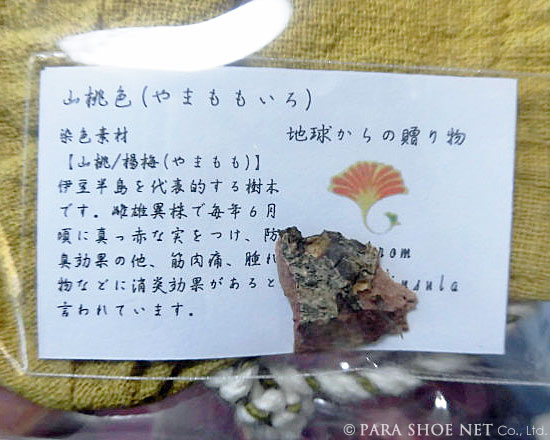 山桃色(やまももいろ)
染色素材
地球からの贈り物
【山桃/楊梅(やまもも)】
伊豆半島を代表的する樹木
です。雌雄異株で毎年6月
頃に真っ赤な実をつけ、防
臭効果の他、筋肉痛、腫れ
物などに消炎効果があると
言われています。
© PARA SHOE NET Co., Ltd.